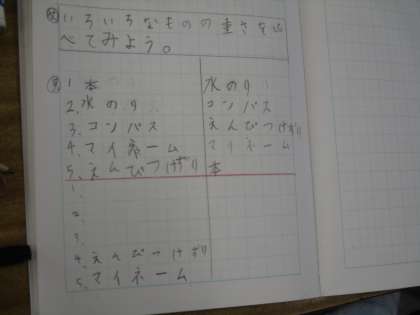 いろいろなものの重さを比
べてみよう。
1 本 水のり
2. 水のり コンパス
3. コンパス えんぴつけずり
4. マイネーム マイネーム
5. えんぴつけずり 本
1.
2.
3.
4. えんぴつけずり
5. マイネーム